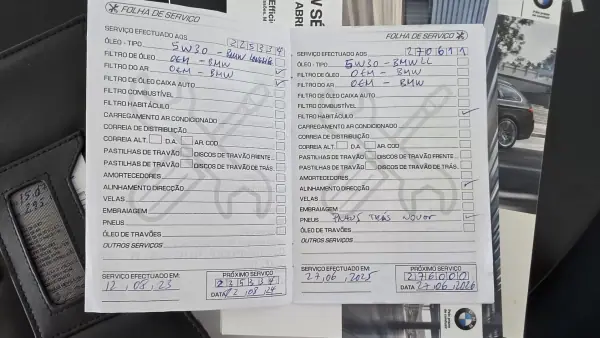 FOLHA DE SERVIÇO
SERVIÇO EFECTUADO AOS 225334
ÓLEO - TIPO 5W30 - BMW
FILTRO DE ÓLEO OEM - BMW
FILTRO DO AR OEM - BMW
FILTRO DE ÓLEO CAIXA AUTO
FILTRO COMBUSTÍVEL
FILTRO HABITÁCULO
CARREGAMENTO AR CONDICIONADO
CORREIA DE DISTRIBUIÇÃO
CORREIA ALT. D.A. AR. COD.
PASTILHAS DE TRAVÃO DISCOS DE TRAVÃO FRENTE
PASTILHAS DE TRAVÃO DISCOS DE TRAVÃO DE TRÁS
AMORTECEDORES
ALINHAMENTO DIRECÇÃO
VELAS
EMBRAIAGEM
PNEUS
ÓLEO DE TRAVÕES
OUTROS SERVIÇOS
SERVIÇO EFECTUADO EM:
12, 08, 23
PRÓXIMO SERVIÇO
235334
DATA 12, 08, 24
FOLHA DE SERVIÇO
SERVIÇO EFECTUADO AOS
ÓLEO - TIPO 5W30 - BMW LL
FILTRO DE ÓLEO OEM - BMW
FILTRO DO AR OEM - BMW
FILTRO DE ÓLEO CAIXA AUTO
FILTRO COMBUSTÍVEL
FILTRO HABITÁCULO
CARREGAMENTO AR CONDICIONADO
CORREIA DE DISTRIBUIÇÃO
CORREIA ALT. D.A. AR. COD.
PASTILHAS DE TRAVÃO DISCOS DE TRAVÃO FRENTE
PASTILHAS DE TRAVÃO DISCOS DE TRAVÃO DE TRÁS
AMORTECEDORES
ALINHAMENTO DIRECÇÃO
VELAS
EMBRAIAGEM
PNEUS PNEUS TRÁS NOVOS
ÓLEO DE TRAVÕES
OUTROS SERVIÇOS
SERVIÇO EFECTUADO EM:
27, 06, 2025
PRÓXIMO SERVIÇO
276000
DATA 27, 06, 2026